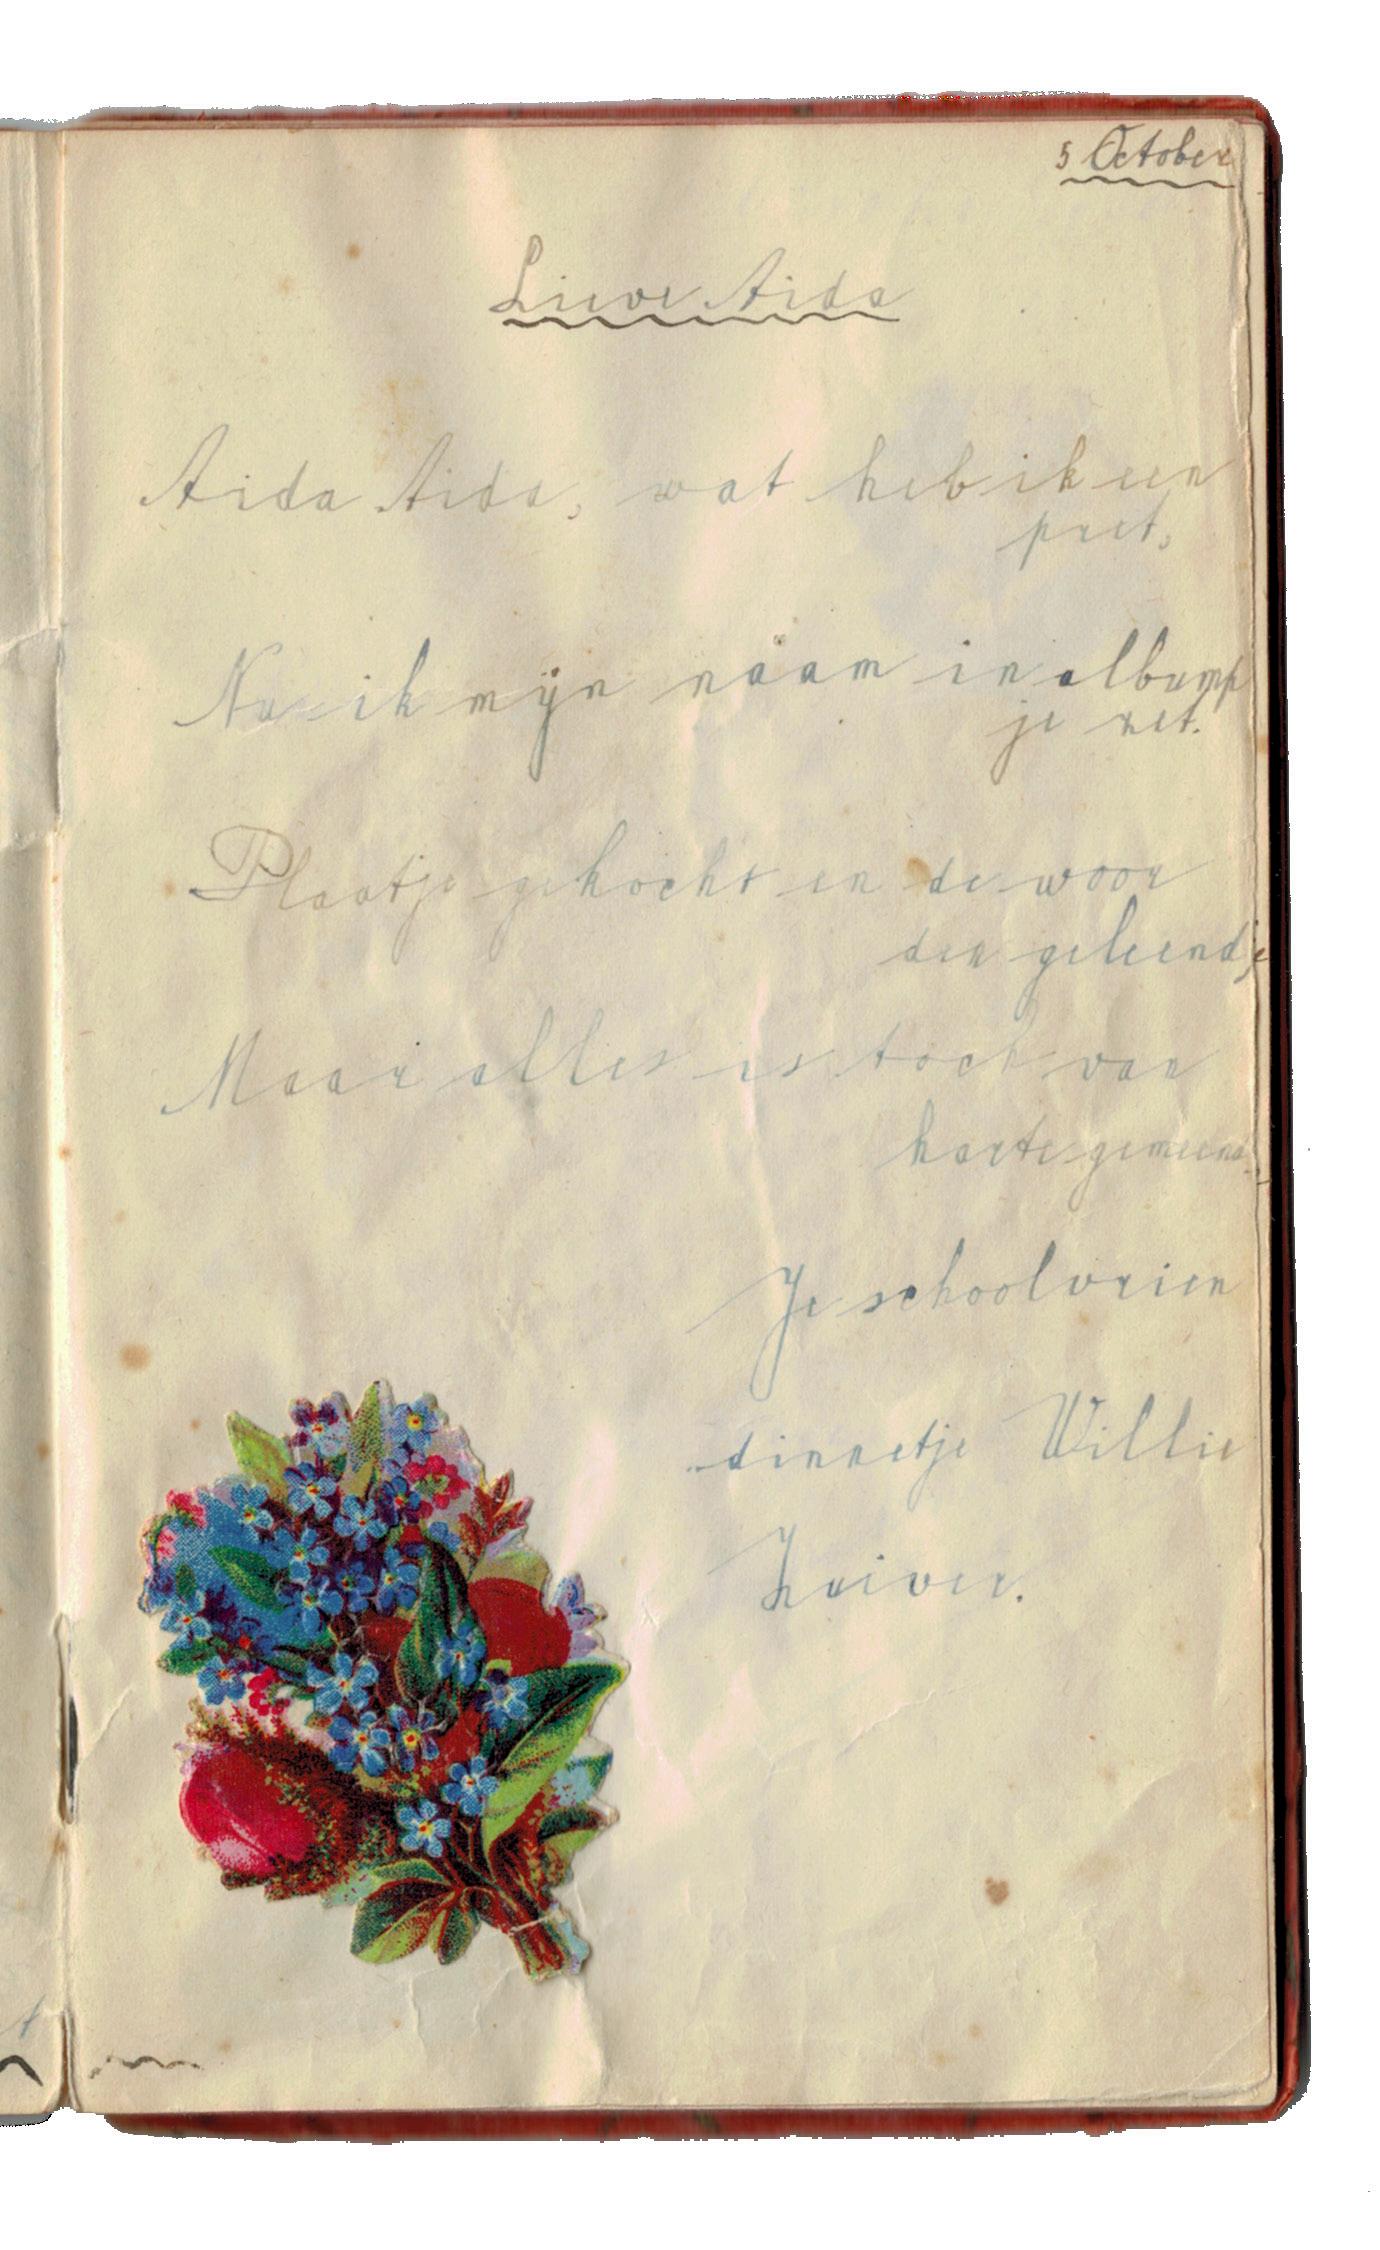 5 October
Lieve Aida
Aida Aida, wat heb ik een
pret,
Nu ik mijn naam in albump
je zet.
Plaatje gekocht en de woor
den geleend,
Maar alles is toch van
harte gemeend.
Je schoolvrien
dinnetje Willie